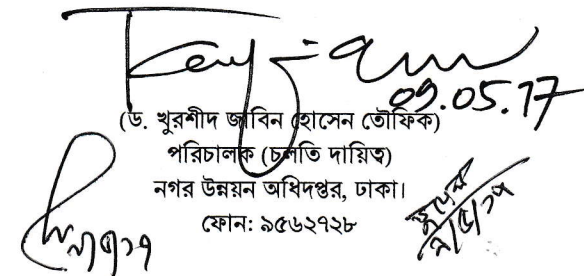 09.05.17
(ড. খুরশীদ জাবিন হোসেন তৌফিক)
পরিচালক (চলতি দায়িত্ব)
নগর উন্নয়ন অধিদপ্তর, ঢাকা।
ফোন: ৯৫৬২৭২৮
৯/৫/১৭
৯/৫/১৭